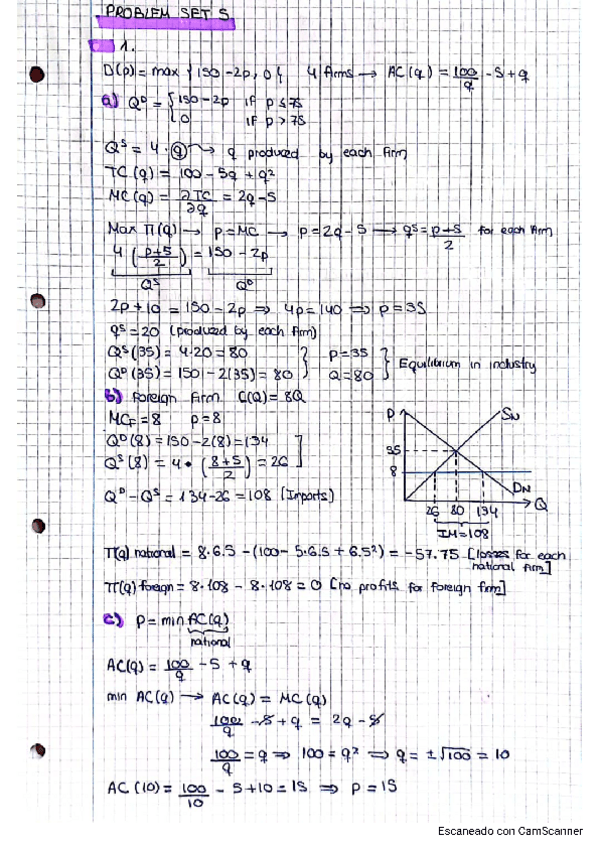 PROBLEM SET 5
1.
D(p) = max {150-2p, 0}   4 firms → AC(q) = 100/q - 5 + q
a) Q^D = { 150-2p if p ≤ 75
0 if p > 75
Q^S = 4 · q → q produced by each firm
TC(q) = 100 - 5q + q²
MC(q) = ∂TC/∂q = 2q - 5
Max π(q) → p = MC → p = 2q - 5 → q^S = p+5/2 for each firm
4 (p+5/2) = 150 - 2p
Q^S Q^D
2p + 10 = 150 - 2p ⇒ 4p = 140 ⇒ p = 35
q^S = 20 (produced by each firm)
Q^S(35) = 4·20 = 80
Q^D(35) = 150 - 2(35) = 80 } p = 35 Q = 80 } Equilibrium in industry
b) Foreign firm C(Q) = 8Q
MC_F = 8   p = 8
Q^D(8) = 150 - 2(8) = 134
Q^S(8) = 4 · (8+5/2) = 26
Q^D - Q^S = 134 - 26 = 108 (Imports)
P
S_N
35
8
D_N
Q
26 80 134
IM = 108
π(q) national = 8·6.5 - (100 - 5·6.5 + 6.5²) = -57.75 [losses for each national firm]
π(q) foreign = 8·108 - 8·108 = 0 [no profits for foreign firm]
c) p = min AC(q)
national
AC(q) = 100/q - 5 + q
min AC(q) → AC(q) = MC(q)
100/q - 5 + q = 2q - 5
100/q = q ⇒ 100 = q² ⇒ q = ±√100 = 10
AC(10) = 100/10 - 5 + 10 = 15 ⇒ p = 15
Escaneado con CamScanner